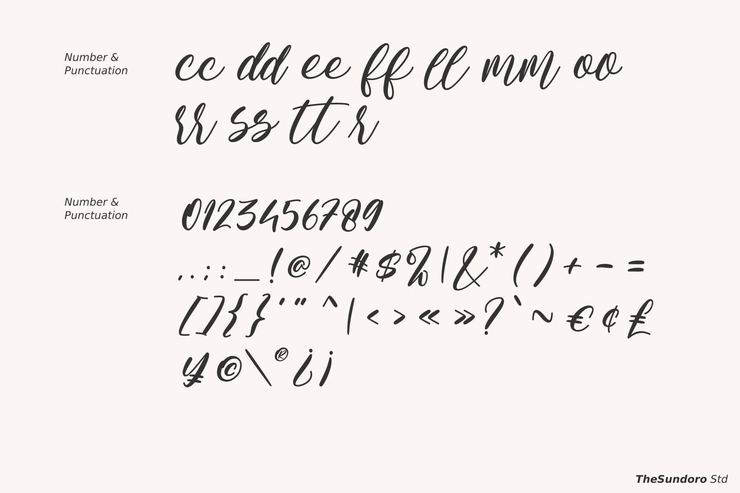 Number &
Punctuation
cc dd ee ff ll mm oo
rr ss tt r
Number &
Punctuation
0123456789
. , ; : _ ! @ / # $ % | & * ( ) + - =
[ ] { } ' " ^ | < > « » ? ` ~ € ¢ £
¥ © \ ® ¿ ¡
TheSundoro Std